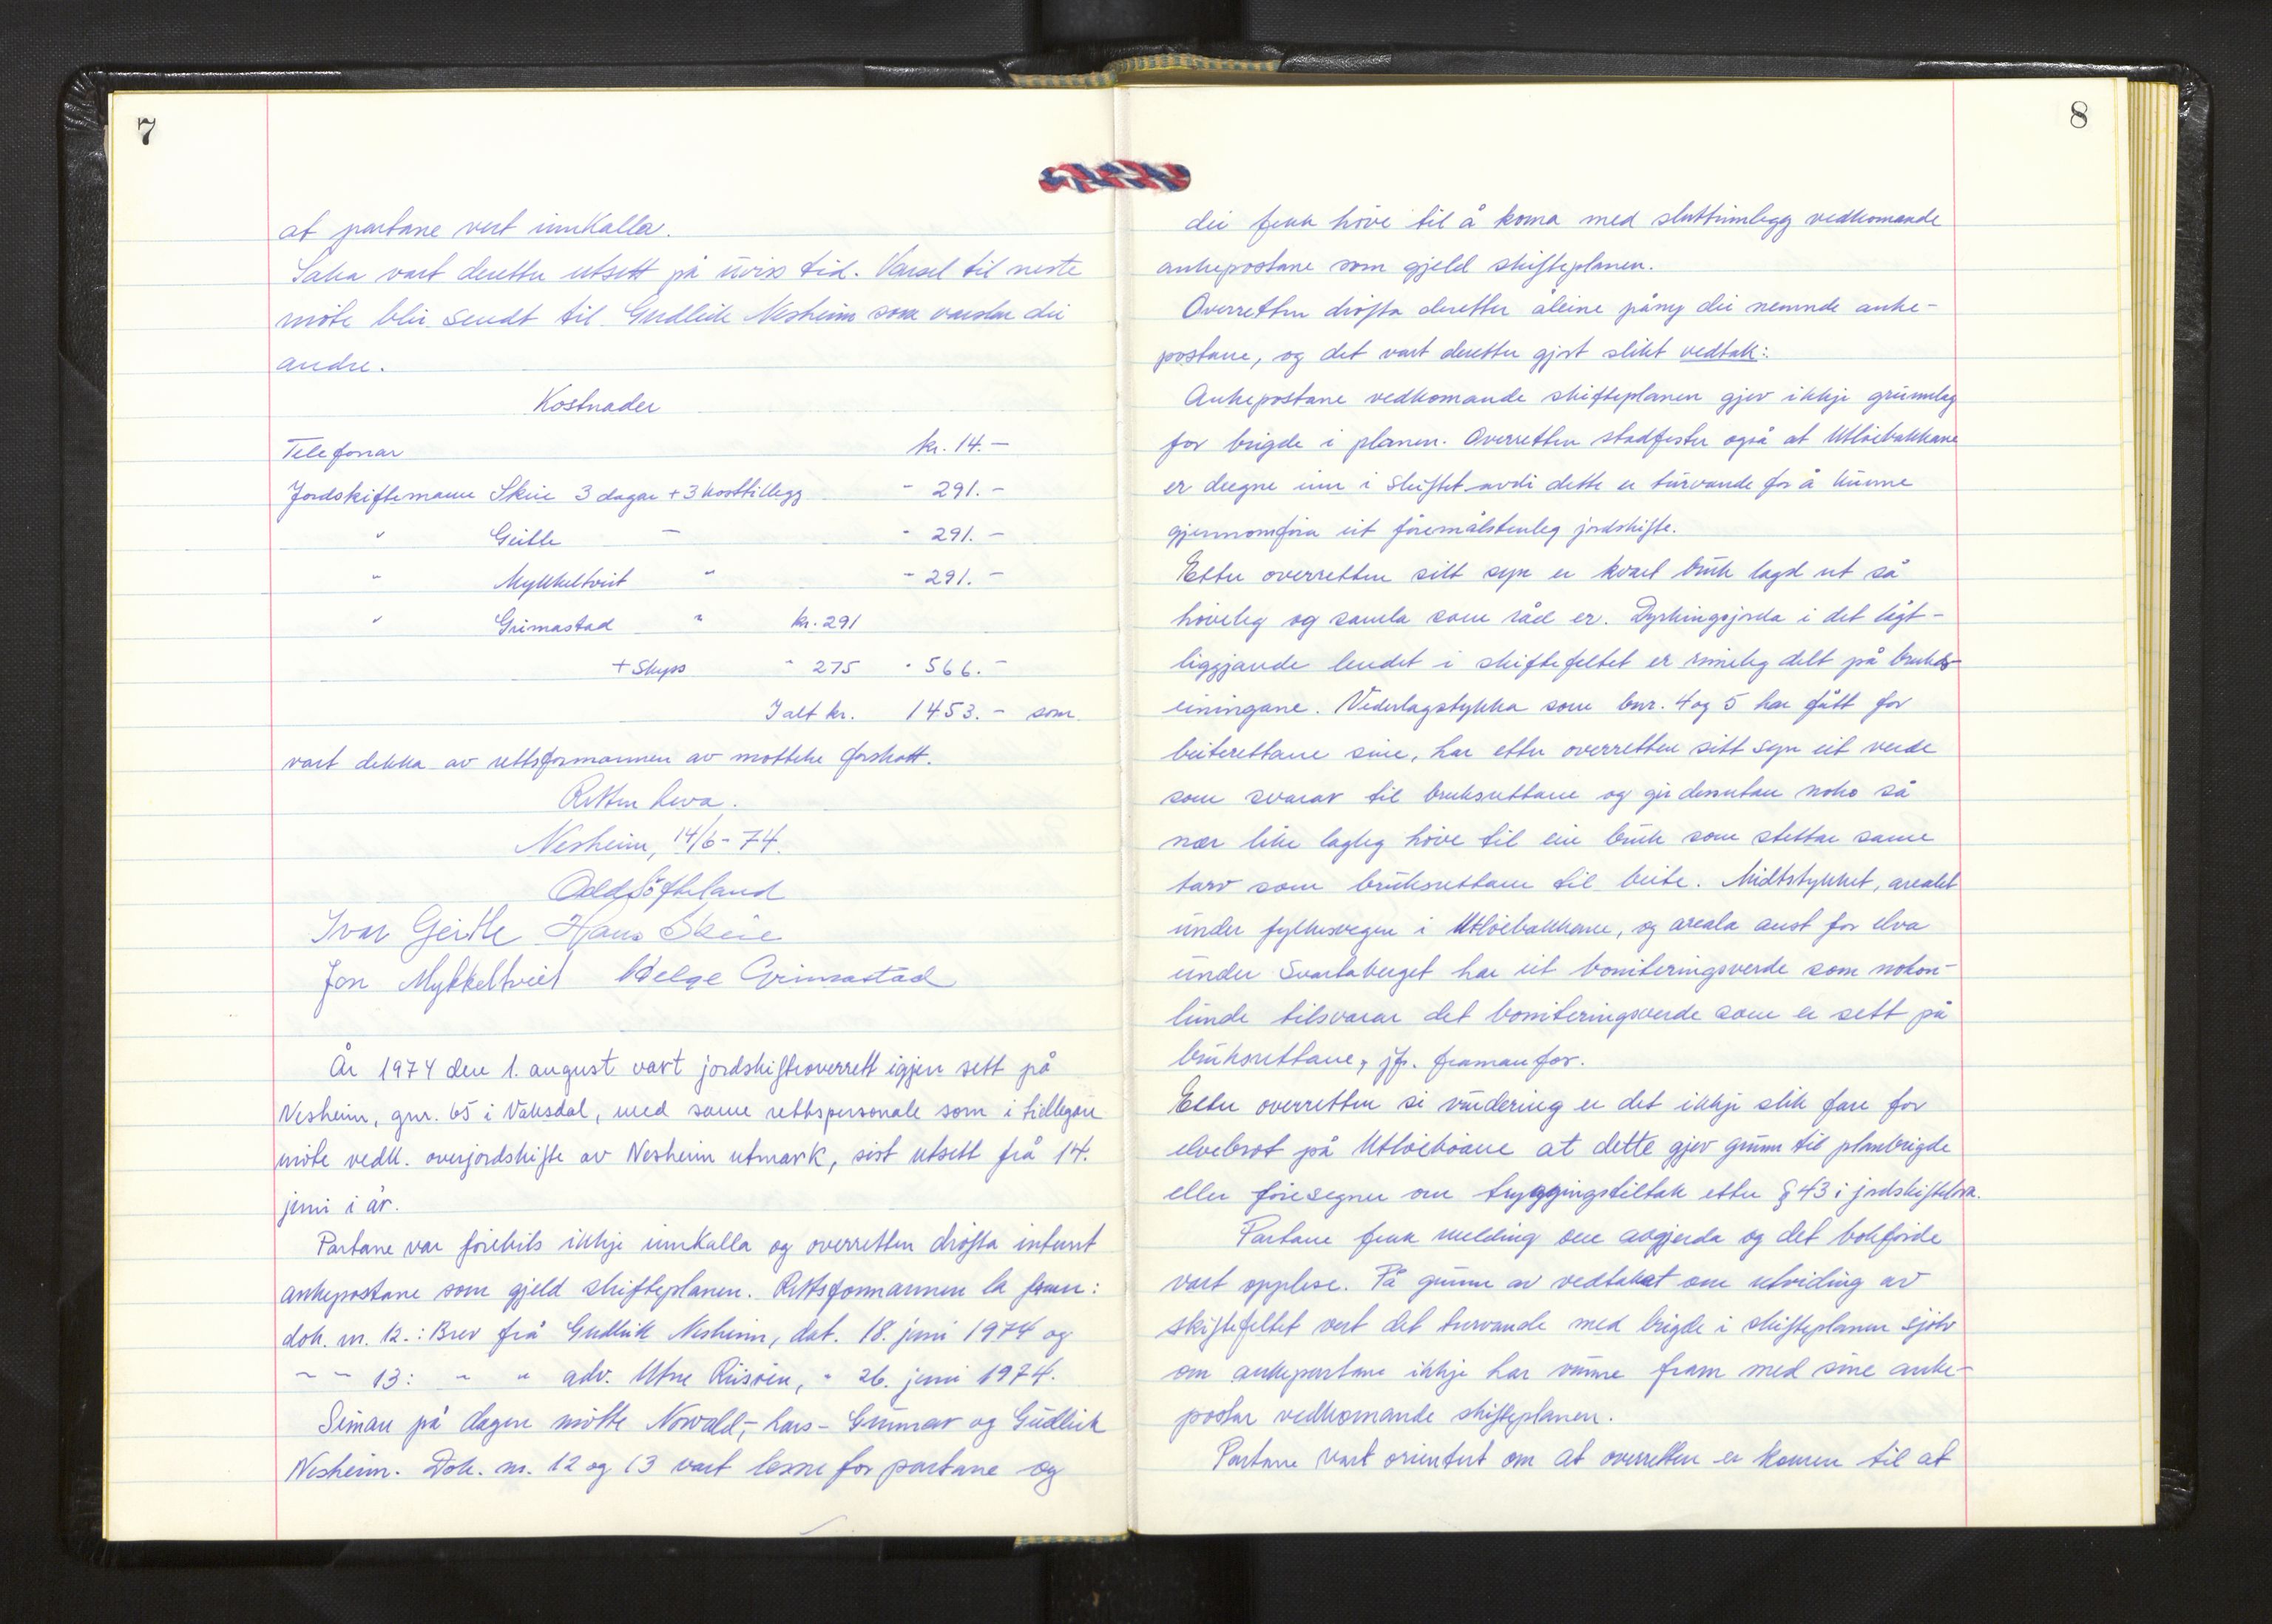 7
at partane vert innkalla.
Saka vart deretter utsett på uviss tid. Varsel til neste
møte blir sendt til Gudleik Nesheim som varslar dei
andre.
Kostnader
Telefonar kr. 14.-
Jordskiftemann Skeie 3 dagar + 3 kosttillegg - 291.-
" Geitle - - 291.-
" Mykkeltveit " - 291.-
" Grimastad " kr. 291
+ Skyss - 275 - 566.-
I alt kr. 1453.- som
vart dekka av rettsformannen av motteke forskott.
Retten heva.
Nesheim, 14/6-74.
Odd Söfteland
Ivar Geitle Hans Skeie
Jon Mykkeltveit Helge Grimastad
År 1974 den 1. august vart jordskifteoverrett igjen sett på
Nesheim, gnr. 65 i Vaksdal, med same rettspersonale som i tidlegare
møte vedk. overjordskifte av Nesheim utmark, sist utsett frå 14.
juni i år.
Partane var førebils ikkje innkalla og overretten drøfta internt
ankepostane som gjeld skifteplanen. Rettsformannen la fram:
dok. nr. 12.: Brev frå Gudleik Nesheim, dat. 18. juni 1974 og
- - 13: - " adv. Utne Riisøen, " 26. juni 1974.
Seinare på dagen møtte Norvald-, Lars- Gunnar og Gudleik
Nesheim. Dok. nr. 12 og 13 vart lesne for partane og
8
dei fekk høve til å koma med sluttinnlegg vedkomande
ankepostane som gjeld skifteplanen.
Overretten drøfta deretter åleine påny dei nemnde anke-
postane, og det vart deretter gjort slikt vedtak:
Ankepostane vedkomande skifteplanen gjev ikkje grunnlag
for brigde i planen. Overretten stadfester også at Utløebakkane
er dregne inn i skiftet avdi dette er turvande for å kunne
gjennomføra eit føremålstenleg jordskifte.
Etter overretten sitt syn er kvart bruk lagd ut så
høveleg og samla som råd er. Dyrkingsjorda i det lågt-
liggjande lendet i skiftefeltet er rimeleg delt på bruks-
einingane. Vederlagstykka som bnr. 4 og 5 har fått for
beiterettane sine, har etter overretten sitt syn eit verde
som svarar til bruksrettane og gir dessutan noko så
nær like lagleg høve til ein bruk som stettar same
tarv som bruksrettane til beite. Midtstykket, arealet
under fylkesvegen i Utløebakkane, og areala aust for elva
under Svartaberget har eit boniteringsverde som nokon-
lunde tilsvarar det boniteringsverde som er sett på
bruksrettane, jfr. framanfor.
Etter overretten si vurdering er det ikkje slik fare for
elvebrot på Utløebøane at dette gjev grunn til planbrigde
eller føresegner om tryggingstiltak etter § 43 i jordskiftelova.
Partane fekk melding om avgjerda og det bokførde
vart opplese. På grunn av vedtaket om utviding av
skiftefeltet vert det turvande med brigde i skifteplanen sjølv
om ankepartane ikkje har vunne fram med sine anke-
postar vedkomande skifteplanen.
Partane vart orientert om at overretten er komen til at